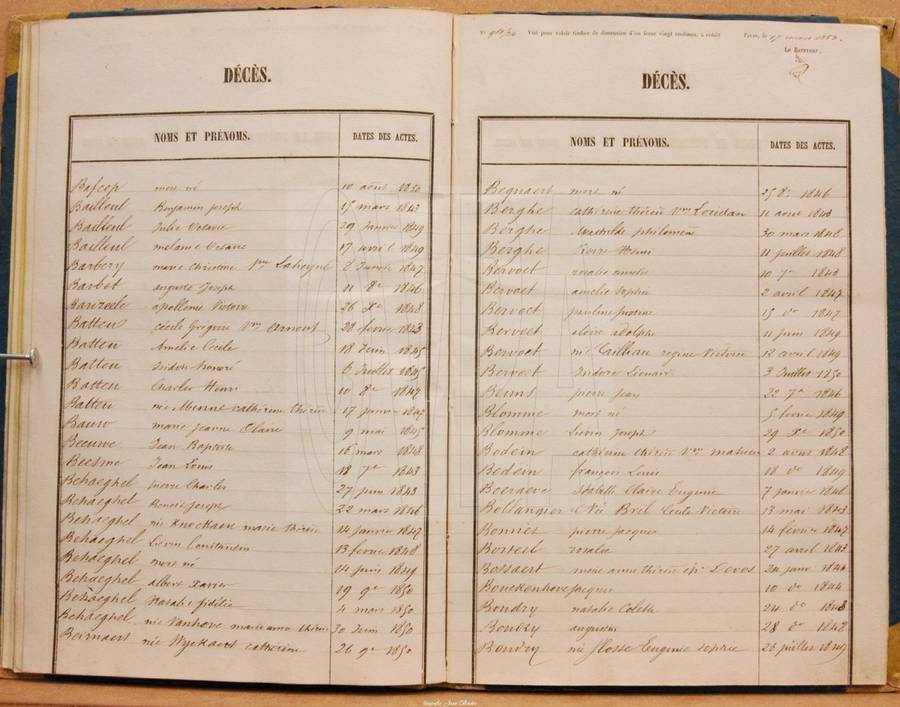 DÉCÈS.
NOMS ET PRÉNOMS. DATES DES ACTES.
Bafcop mort né 10 août 1850
Bailleul Benjamin joseph 15 mars 1843
Bailleul Julie Octavie 29 Janvier 1849
Bailleul mélanie Octavie 17 avril 1849
Barbery marie Christine 1847
Barbet auguste Joseph 11 8e 1846
apollonie Victoire 26 Xe 1848
Batteu cécile Grégoire Vve Arnout 28 février 1843
Batteu Amélie Cécile 18 Juin 1845
Batteu Isidore honoré 6 Juillet 1845
Batteu Charles Henri 10 8e 1847
Batteu née Monne catherine thérèse 17 janvier 1847
Bauw marie jeanne Claire 9 mai 1845
Beeuwe Jean Baptiste 16 mars 1848
Beesme Jean Louis 18 7e 1843
Behaeghel pierre Charles 27 juin 1843
Behaeghel honoré Joseph 22 mars 1846
Behaeghel née Knockaert marie thérèse 14 janvier 1847
Behaeghel Liévin Constantin 13 février 1848
Behaeghel mort né 14 juin 1849
Behaeghel albert Xavier 19 9e 1850
Behaeghel Natalie fidélie 4 mars 1850
Behaeghel née Vanhove marie anne thérèse 30 Juin 1850
Beirnaert née Wyckaert catherine 26 9e 1850
No Vu pour valoir timbre de dimension d'un franc vingt centimes, à crédit
le 17 1853.
Le Receveur,
DÉCÈS.
NOMS ET PRÉNOMS. DATES DES ACTES.
Begnaert mort né 25 8e 1846
Berghe catherine thérèse Vve Loridan 11 août 1843
Berghe Mathilde philomène 30 mars 1848
Berghe Pierre Henri 11 juillet 1848
Bervoet rosalie amélie 10 7e 1843
Bervoet amélie Sophie 2 avril 1847
Bervoet pauline justine 15 do 1847
Bervoet adolphe 11 juin 1849
Bervoet née Cailliau regine Victoire 12 avril 1849
Bervoet Isidore Léonard 3 Juillet 1850
Beuns pierre jean 22 7e 1846
Blomme mort né 5 février 1849
Blomme Liévin Joseph 29 Xe 1850
Bodein catherine thérèse Vve 2 août 1848
Bodein françois Louis 18 do 1849
Boeraeve Isabelle Claire Eugénie 7 janvier 1846
Bollangier née Bril Cécile Victoire 13 mai 1843
Bonnet pierre jacques 14 février 1847
rosalie 27 avril 1843
Bossaert marie anne thérèse ép. Devos 24 janv 1844
Bouckenhove jacques 10 do 1844
Boudry natalie Colette 24 do 1848
Boudry augustin 28 do 1848
Boudry née Flosse Eugénie Sophie 26 juillet 1849